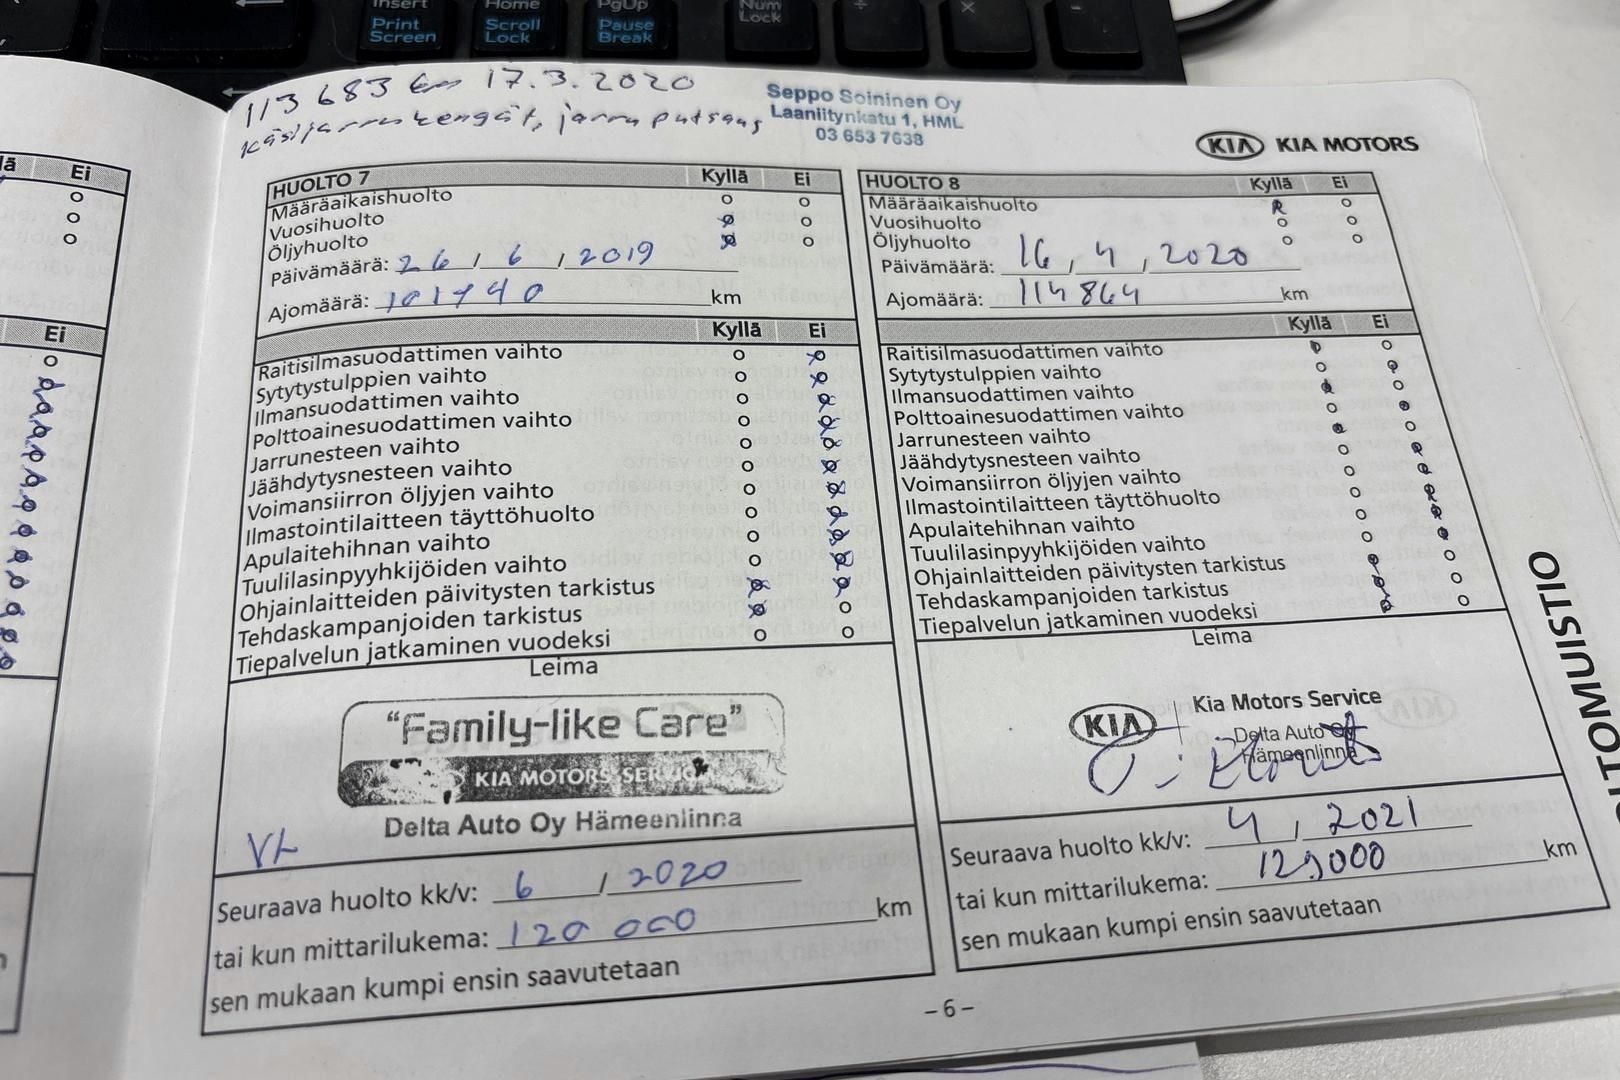 Insert
Home
PgUp
Num
Lock
Print
Screen
Scroll
Lock
Pause
Break
113 683 km 17.3.2020
Käsijarrukengät, jarru putsaus
Seppo Soininen Oy
Laaniitynkatu 1, HML
03 653 7638
KIA KIA MOTORS
lä Ei
Ei
HUOLTO 7 Kyllä Ei
Määräaikaishuolto
Vuosihuolto
Öljyhuolto
Päivämäärä: 26 / 6 / 2019
Ajomäärä: 101740 km
Kyllä Ei
Raitisilmasuodattimen vaihto
Sytytystulppien vaihto
Ilmansuodattimen vaihto
Polttoainesuodattimen vaihto
Jarrunesteen vaihto
Jäähdytysnesteen vaihto
Voimansiirron öljyjen vaihto
Ilmastointilaitteen täyttöhuolto
Apulaitehihnan vaihto
Tuulilasinpyyhkijöiden vaihto
Ohjainlaitteiden päivitysten tarkistus
Tehdaskampanjoiden tarkistus
Tiepalvelun jatkaminen vuodeksi
Leima
"Family-like Care"
KIA MOTORS SERVICE
Delta Auto Oy Hämeenlinna
VL
Seuraava huolto kk/v: 6 / 2020
tai kun mittarilukema: 120 000 km
sen mukaan kumpi ensin saavutetaan
HUOLTO 8 Kyllä Ei
Määräaikaishuolto
Vuosihuolto
Öljyhuolto
Päivämäärä: 16 / 4 / 2020
Ajomäärä: 114864 km
Kyllä Ei
Raitisilmasuodattimen vaihto
Sytytystulppien vaihto
Ilmansuodattimen vaihto
Polttoainesuodattimen vaihto
Jarrunesteen vaihto
Jäähdytysnesteen vaihto
Voimansiirron öljyjen vaihto
Ilmastointilaitteen täyttöhuolto
Apulaitehihnan vaihto
Tuulilasinpyyhkijöiden vaihto
Ohjainlaitteiden päivitysten tarkistus
Tehdaskampanjoiden tarkistus
Tiepalvelun jatkaminen vuodeksi
Leima
KIA
Kia Motors Service
Delta Auto Oy
Hämeenlinna
Seuraava huolto kk/v: 4 / 2021
tai kun mittarilukema: 129000 km
sen mukaan kumpi ensin saavutetaan
- 6 -
TOMUISTIO